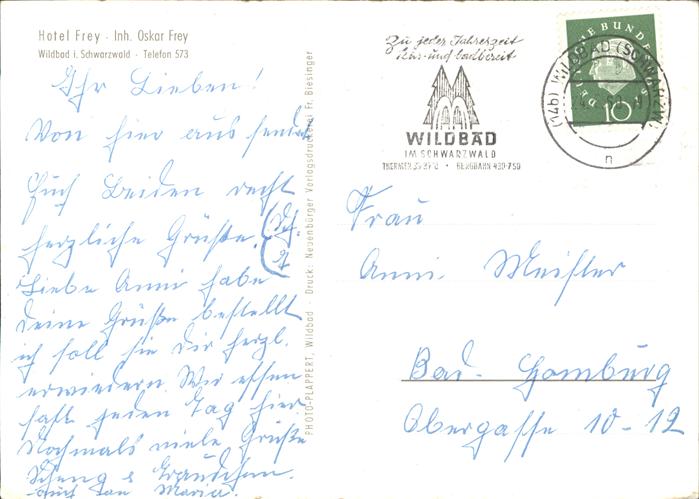 Hotel Frey · Inh. Oskar Frey
Wildbad i. Schwarzwald · Telefon 573
Ihr Lieben!
Von hier aus sende
Euch beiden recht
herzliche Grüße.
Liebe Anni habe
deine Grüße bestellt
ich soll sie dir herzl.
erwiedern. Wir essen
fast jeden Tag hier
Nochmals viele Grüße
Scheng & Traudchen.
auch von Maria.
PHOTO-PLAPPERT, Wildbad Druck: Neuenbürger Verlagsdruckerei Fr. Biesinger
Zu jeder Jahreszeit
kur- und badbereit
WILDBAD
IM SCHWARZWALD
THERMEN 35-37°C · BERGBAHN 430-750
DEUTSCHE BUNDESPOST
10
(14b) WILDBAD (SCHWARZW)
n
Frau
Anni Meister
Bad-Homburg
Obergasse 10-12